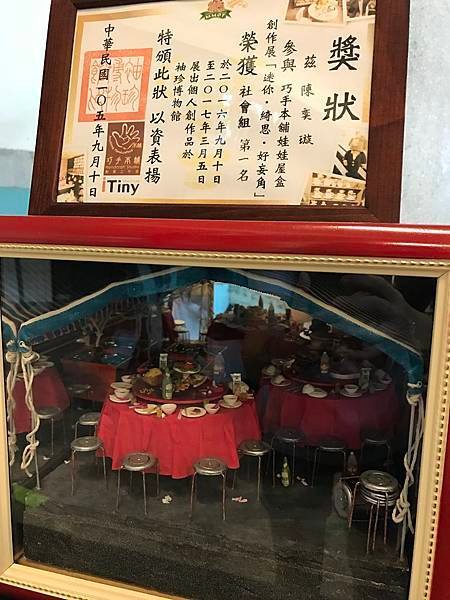 獎狀
茲 陳奕璇
參與 巧手本鋪娃娃屋盒
創作展「迷你•綺思•好妄角」
榮獲 社會組 第一名
於二〇一六年九月十日
至二〇一七年三月五日
展出個人創作品於
袖珍博物館
特頒此狀 以資表揚
中華民國一〇五年九月十日
巧手本鋪
iTiny